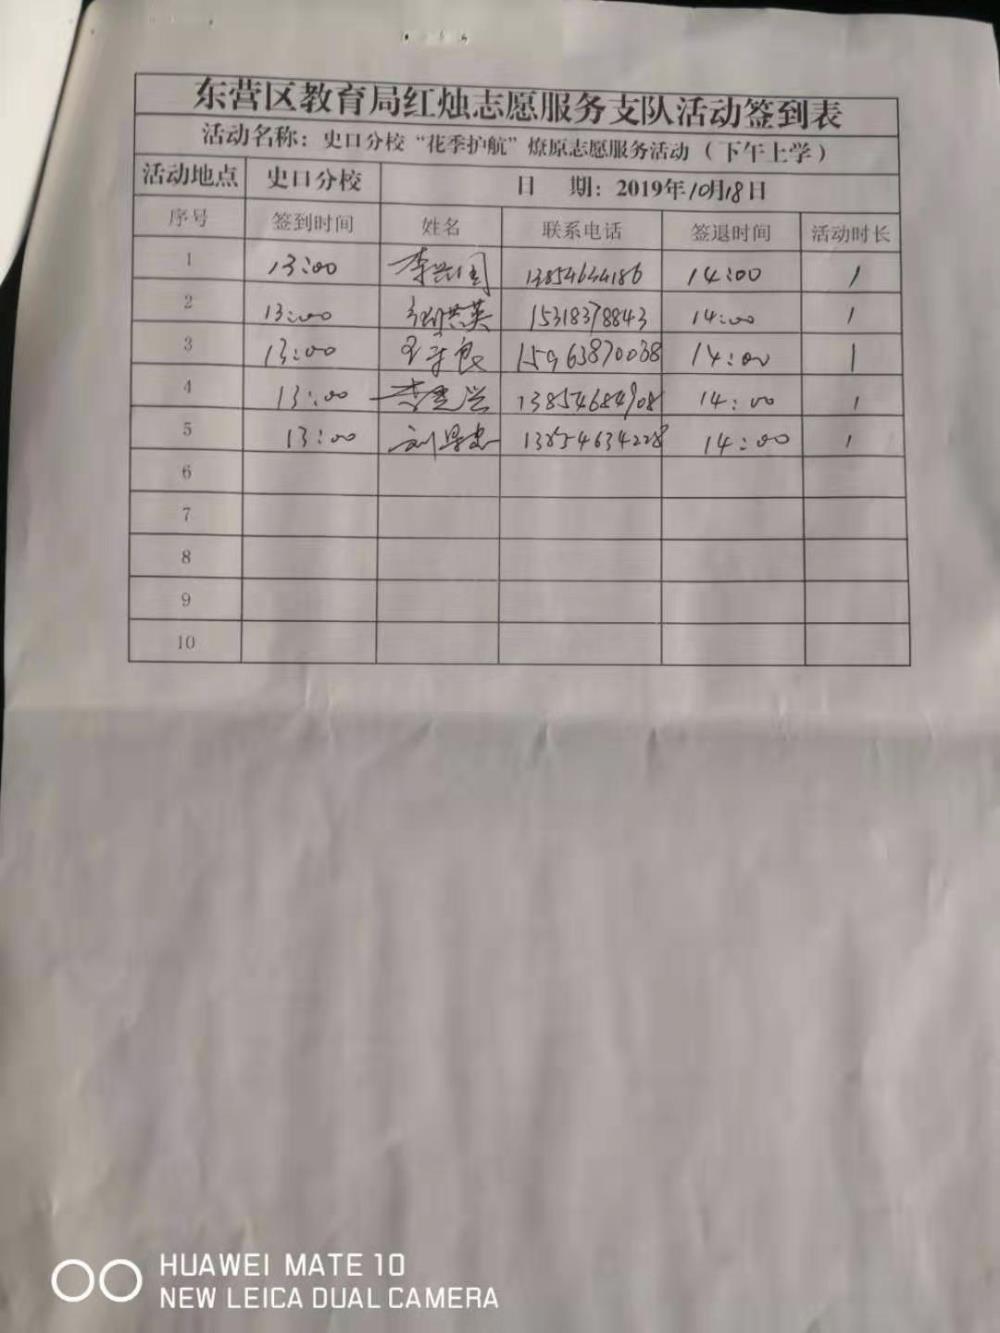 东营区教育局红烛志愿服务支队活动签到表
活动名称：史口分校“花季护航”燎原志愿服务活动（下午上学）
活动地点 史口分校 日 期：2019年10月18日
序号 签到时间 姓名 联系电话 签退时间 活动时长
1 13:00 李兴国 13854644186 14:00 1
2 13:00 15318378843 14:00 1
3 13:00 15963870038 14:00 1
4 13:00 13854684908 14:00 1
5 13:00 13854634228 14:00 1
6
7
8
9
10
HUAWEI MATE 10
NEW LEICA DUAL CAMERA